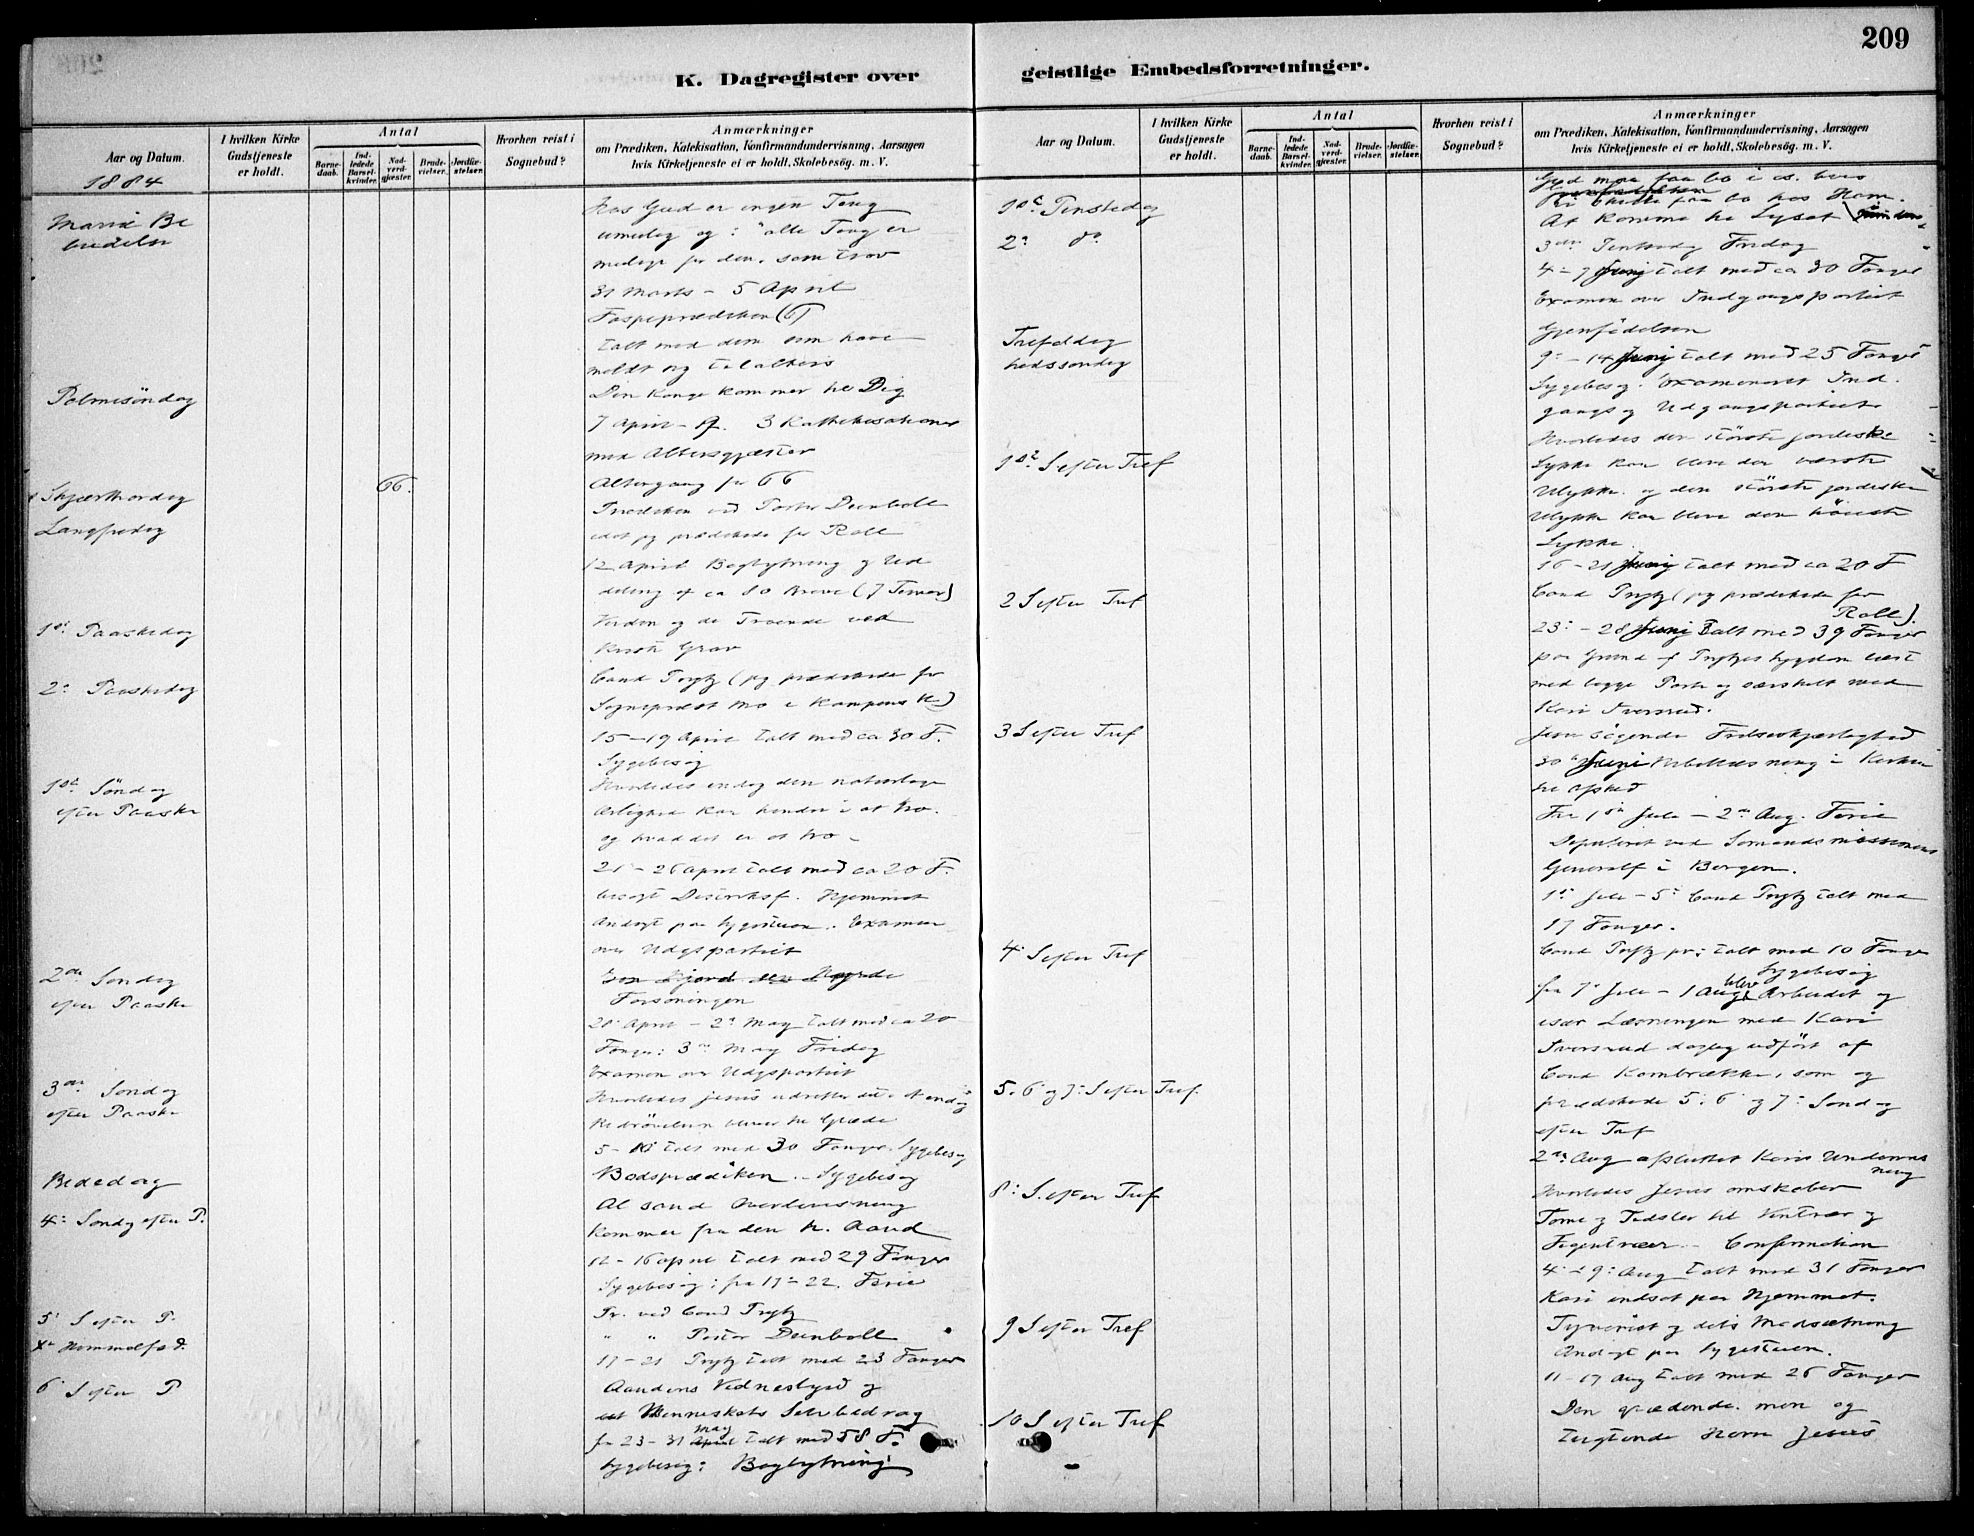 209
K. Dagregister over
geistlige Embedsforretninger.
Aar og Datum.
I hvilken Kirke Gudstjeneste er holdt.
Antal
Barnedaab.
Indledede Barselkvinder.
Nadverdgjæster.
Brudevielser.
Jordfæstelser.
Hvorhen reist i Sognebud?
Anmærkninger
om Prædiken, Katekisation, Konfirmandundervisning, Aarsagen
hvis Kirketjeneste ei er holdt, Skolebesøg. m. V.
1884
Mariæ Be
budelse
Hos Gud er ingen Ting
umulig og: "alle Ting er
mulige for den, som tror
31 Marts - 5 April
Fasteprædiken (6)
talt med dem som have
meldt sig til alters
Palmesöndag
Din Konge kommer til Dig
7 April - 9. 3 Kathekisationer
med Altersgjæster
Skjærthorsdag
66.
Altergang for 66
Langfredag
Prædiken ved Pastor
idet jeg prædikede for Roll
12 April Bogbytning og Ud
deling af ca 80 Breve (7 Timer)
1ste Paaskedag
Verden og de Troende ved
Kristi Grav
2den Paaskedag
Cand (jeg prædikede for
Sognepræst i Kampens K.)
15-19 April talt med ca 30 F.
Sygebesøg
1ste Söndag
efter Paaske
Hvorledes endog den naturlige
Ærlighed kan hindre i at tro.
og hvad det er at tro -
21 - 26 April talt med ca 20 F.
besøgt Hjemmet
Andagt paa Sygestuen. Examen
over Udgspartiet
2den Söndag
efter Paaske
Forsoningen
28 April - 2den May talt med ca 20
Fanger: 3die May Fridag
Examen over Udgspartiet
3die Söndag
efter Paaske
Hvorledes Jesus udretter det at endog
Bedrövelsen bliver til Glæde
5-10 talt med 30 Fanger. Sygebesøg
Bededag
Bodsprædiken. - Sygebesøg
4de Söndag efter P.
Al sand Overbevisning
kommer fra den h. Aand
12-16 april talt med 29 Fanger
Sygebesøg: fra 17-22. Ferie
5 S efter P.
Pr. ved Cand
Himmelfartsd.
" " Pastor
17-21 talt med 23 Fanger
6 S efter P
Aandens Vidnesbyrd og
Menneskets Selvbedrag
fra 23-31 May talt med 58 F.
Sygebesøg: Bogbytning
Aar og Datum.
I hvilken Kirke Gudstjeneste er holdt.
Antal
Barnedaab.
Indledede Barselkvinder.
Nadverdgjæster.
Brudevielser.
Jordfæstelser.
Hvorhen reist i Sognebud?
Anmærkninger
om Prædiken, Katekisation, Konfirmandundervisning, Aarsagen
hvis Kirketjeneste ei er holdt, Skolebesøg. m. V.
1ste Pinsedag
Gud maa faa bo i os, hvis
vi skulle faa bo hos Ham.
2den do
At komme til Lyset
3die Pinsedag Fridag
4-7 Juni talt med ca 30 Fanger
Examen over Indgangspartiet
Trefoldig
hedssøndag
Gjenfödelsen
9-14 Juni talt med 25 Fanger
Sygebesøg. Examineret Ind.
gangs og Udgangspartiet
1ste S efter Tref
Hvorledes den störste jordiske
Lykke kan blive den værste
Ulykke, og den störste jordiske
Ulykke kan blive den höieste
Lykke
16-21 Juni talt med ca 20 F
2 S efter Tref
Cand (jeg prædikede for
Roll).
23-28 Juni talt med 39 Fanger
paa Grund af Sygdom læst
med begge Partier og særskilt med
Kari Iversrud.
3 S efter Tref
Jesu sögende Frelserkjærlighed
30 Juni Bibellæsning i Kirken
til Afsked
Fra 1ste Juli - 2den Aug. Ferie
Deputeret ved Sömandsmissionens
Generalf i Bergen.
1ste Juli - 5 Cand talt med
17 Fanger.
4 S efter Tref
Cand pr: talt med 10 Fanger
Sygebesøg
fra 7 Juli - 1 Aug blev Arbeidet og
især Læsningen med Kari
Iversrud daglig udført af
5. 6 og 7: S efter Tref.
Cand Kornbrække, som og
prædikede 5. 6 og 7: Sondag
efter Tref
2den Aug afsluttet Karis Undervis
ning
8: S. efter Tref
Hvorledes Jesus omskaber
Torne og Tidsler til Vintræer og
Figentræer - Confirmation
4-9: Aug talt med 31 Fanger
Kari indsat paa Hjemmet.
9 S efter Tref
Tyveriet og dets Modsætning
Andagt paa Sygestuen.
11-17 Aug talt med 26 Fanger
10 S efter Tref
Den grædende men og
tugtende Herre Jesus